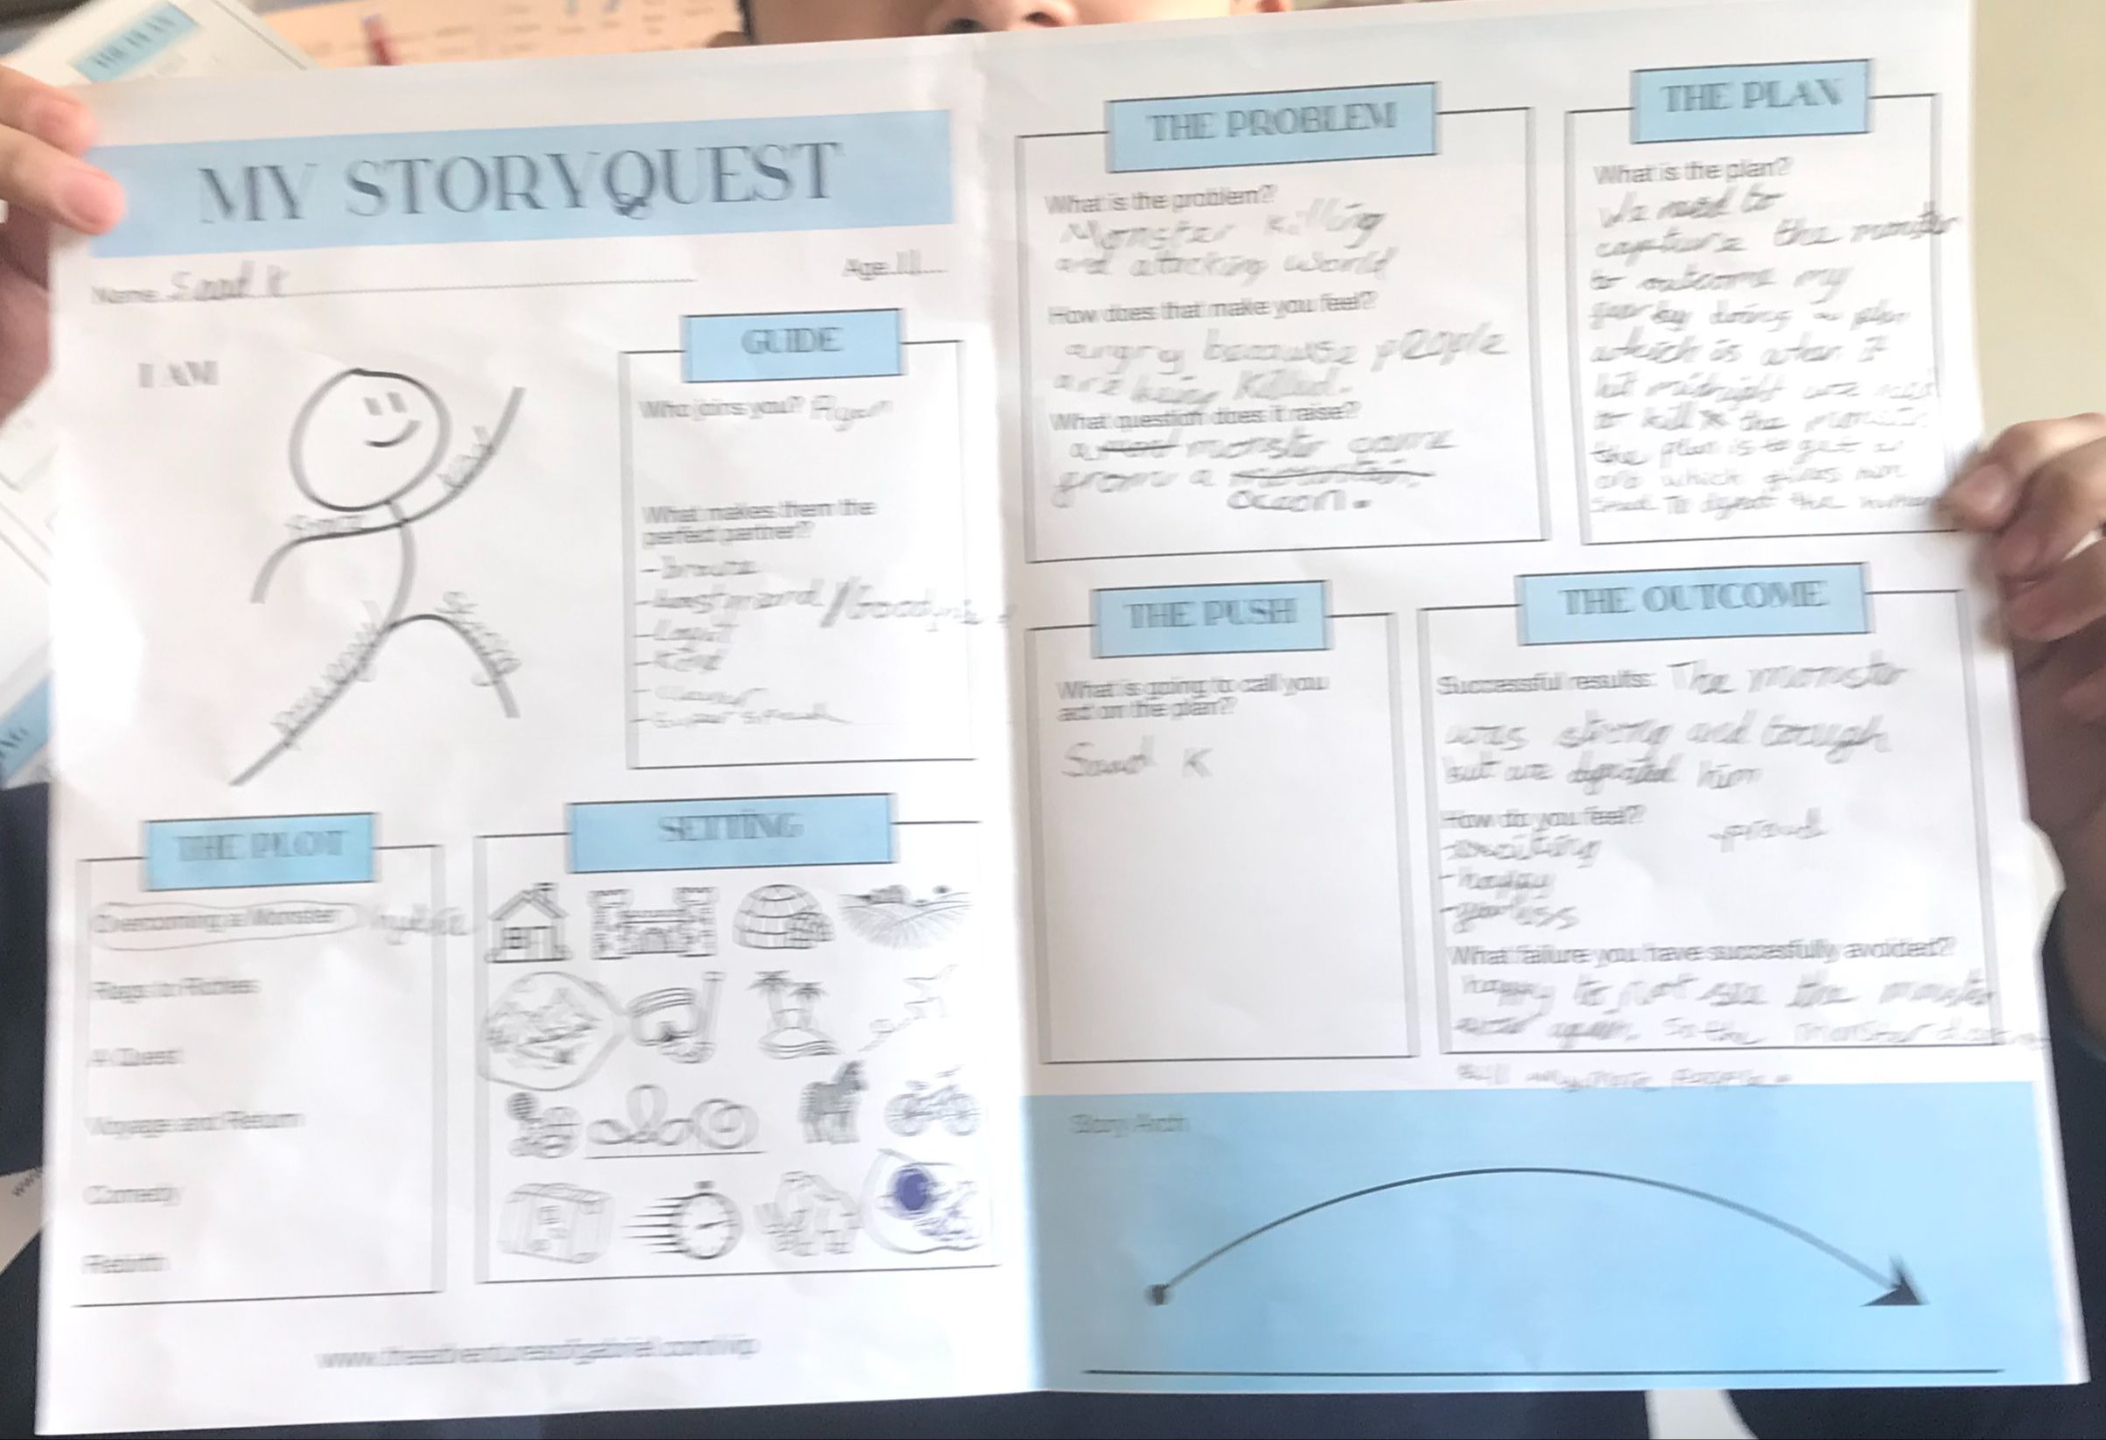 MY STORYQUEST
Name Saad K Age 11
I AM
GUIDE
Who joins you? Ryan
What makes them the
perfect partner?
- brave
- Loyal
- Kind
THE PLOT
Overcoming a Monster
Rags to Riches
A Quest
Voyage and Return
Comedy
Rebirth
SETTING
www.theadventuresofgabriel.com/vip
THE PROBLEM
What is the problem?
Monster killing
and attacking world
How does that make you feel?
angry because people
are being killed.
What question does it raise?
a monster came
from a
ocean.
THE PLAN
What is the plan?
We need to
capture the monster
to outcome my
fear by doing a plan
which is when it
hit midnight we need
to kill the monster
the plan is to get a
orb which gives
THE PUSH
What is going to call you
act on the plan?
Saad K
THE OUTCOME
Successful results: The monster
was strong and tough
but we defeated him
How do you feel?
- smiling - proud
- happy
- fearless
What failure you have succesfully avoided?
happy to not see the monster
ever again. So the monster
kill people
Story Arch